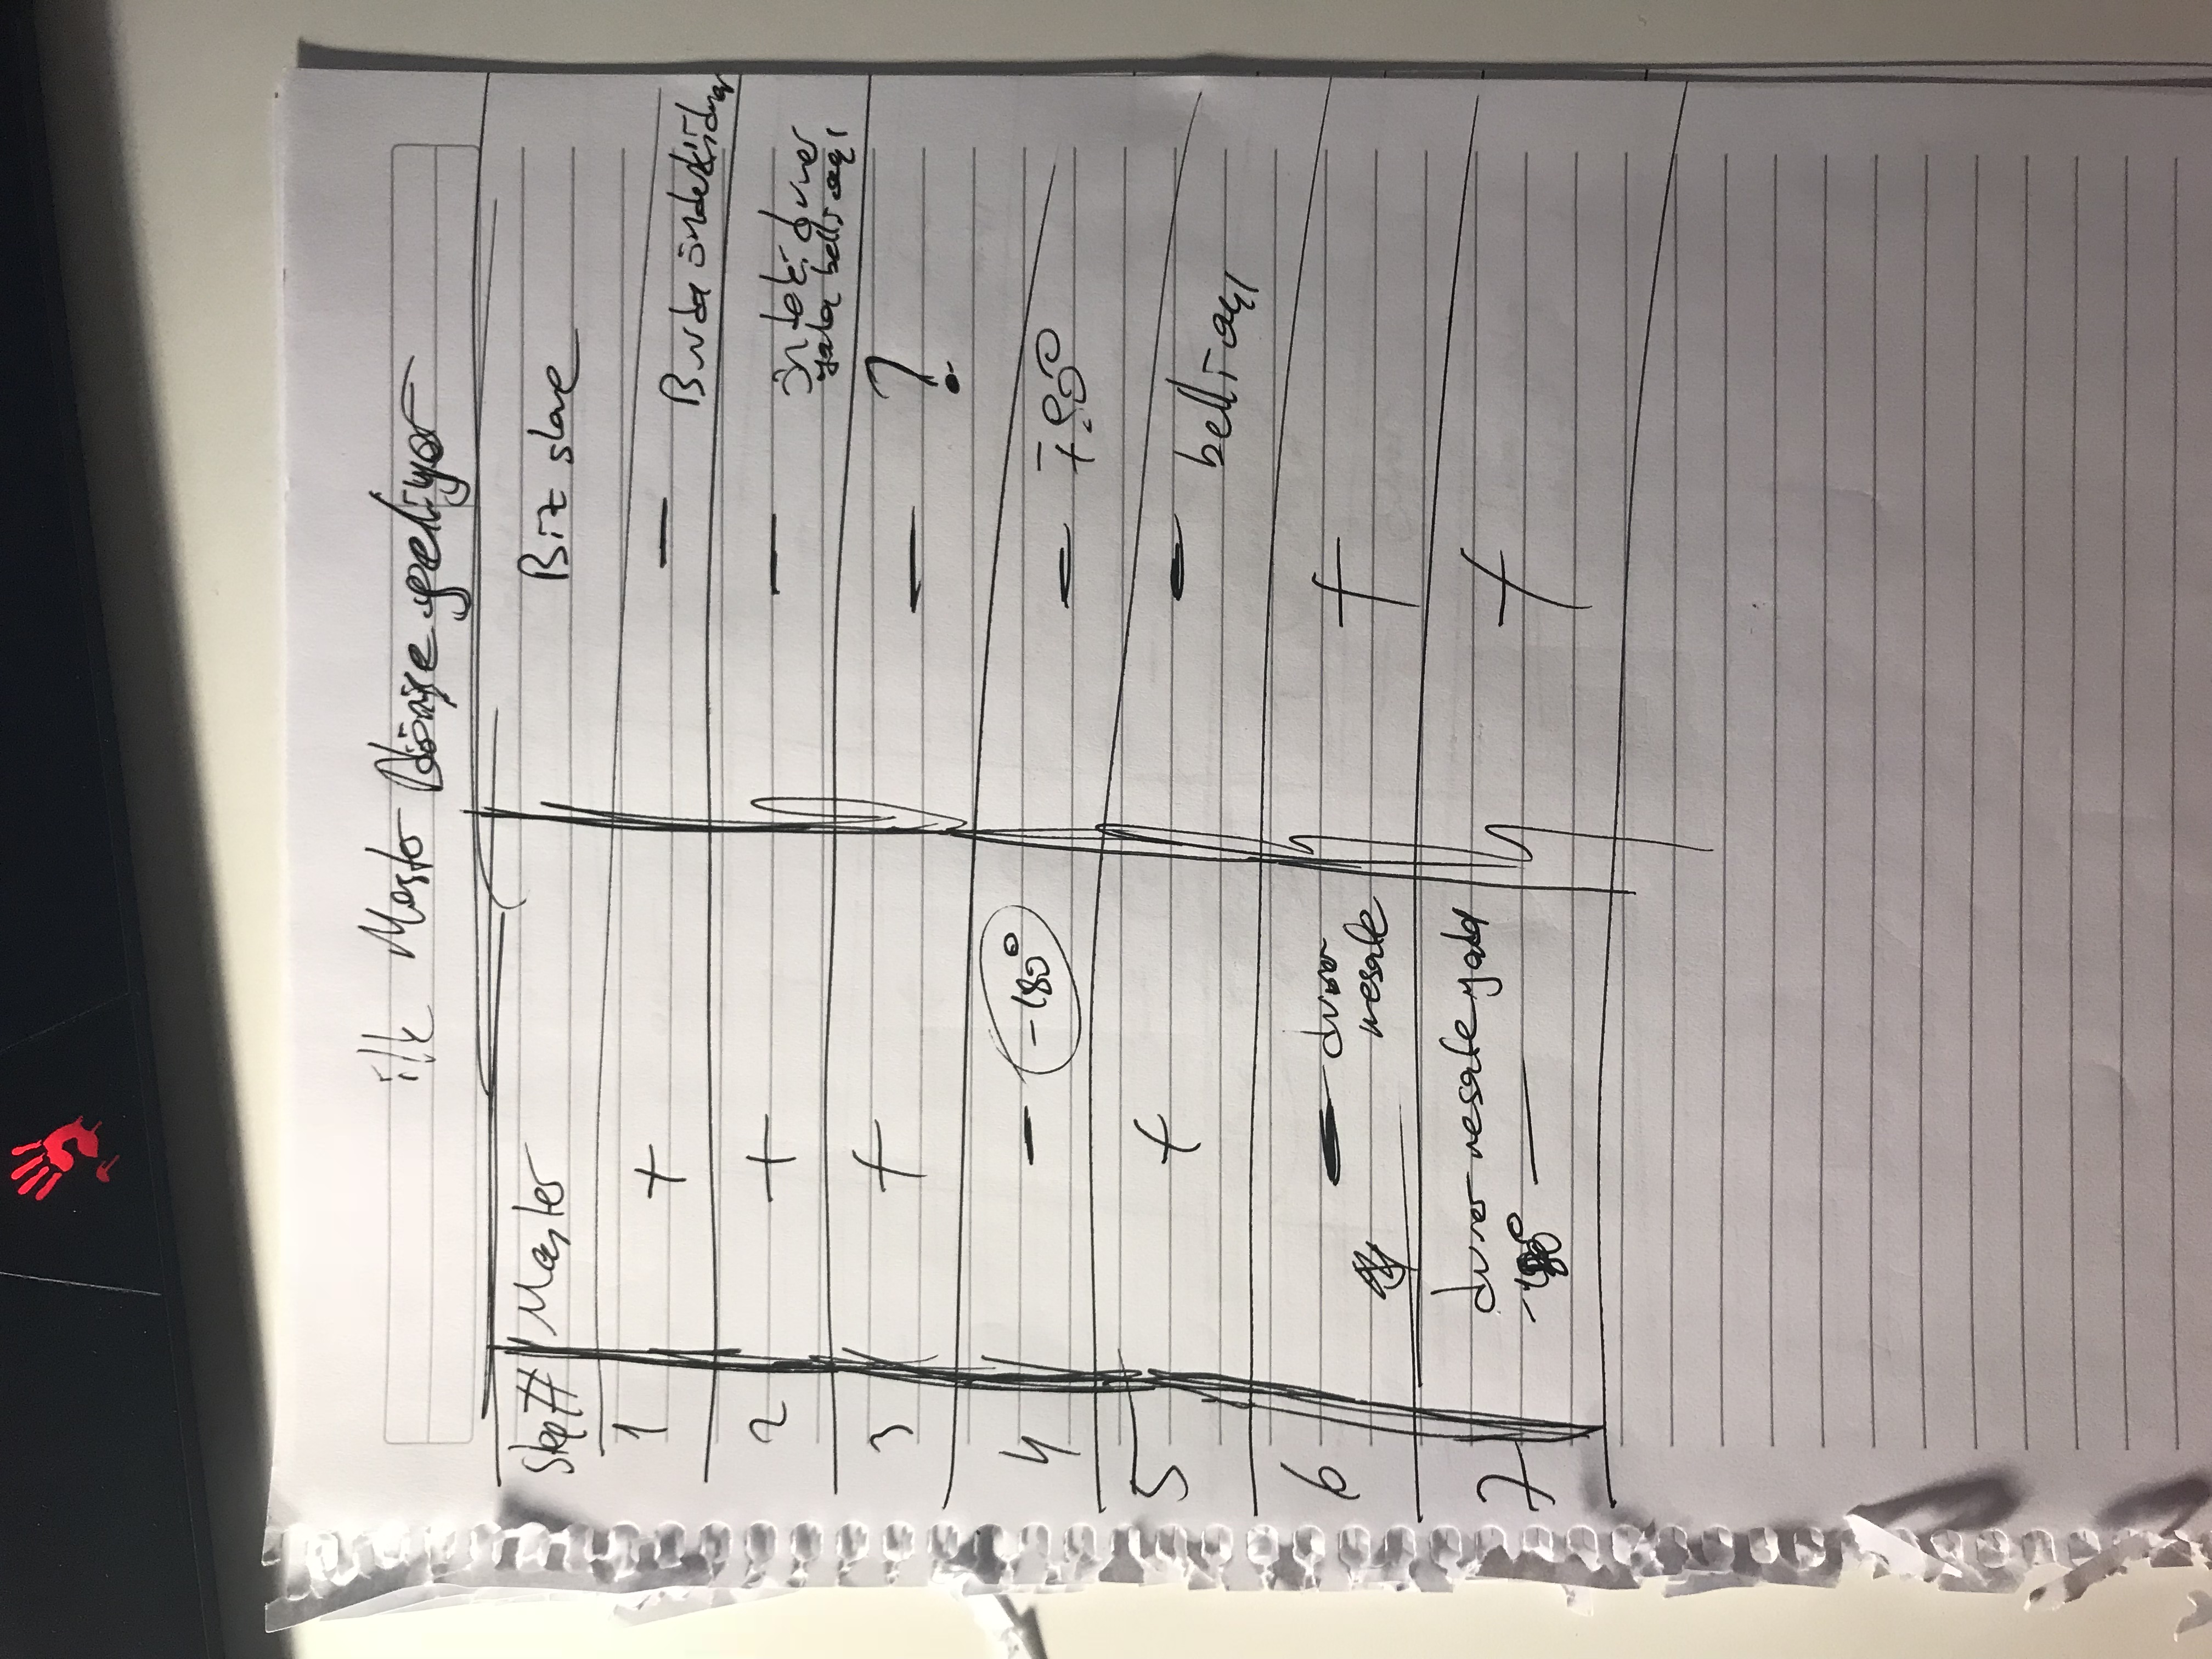 ilk Master Dönüşe geliyor
Step# Master Biz slave
1 + −
Burda öndeki duvar
2 + −
öndeki duvar
yada belli açı
3 + − ?
4 − -180° −
5 + − belli açı
6 − duvar +
mesafe
7 duvar mesafe yada +
−